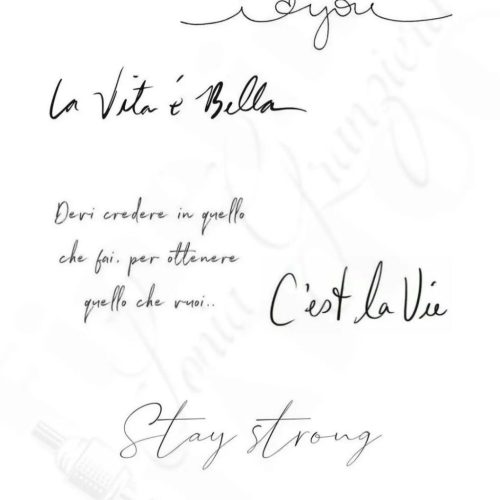 i ♡ you
La Vita é Bella
Devi credere in quello
che fai. per ottenere
quello che vuoi..
C'est la Vie
Stay strong